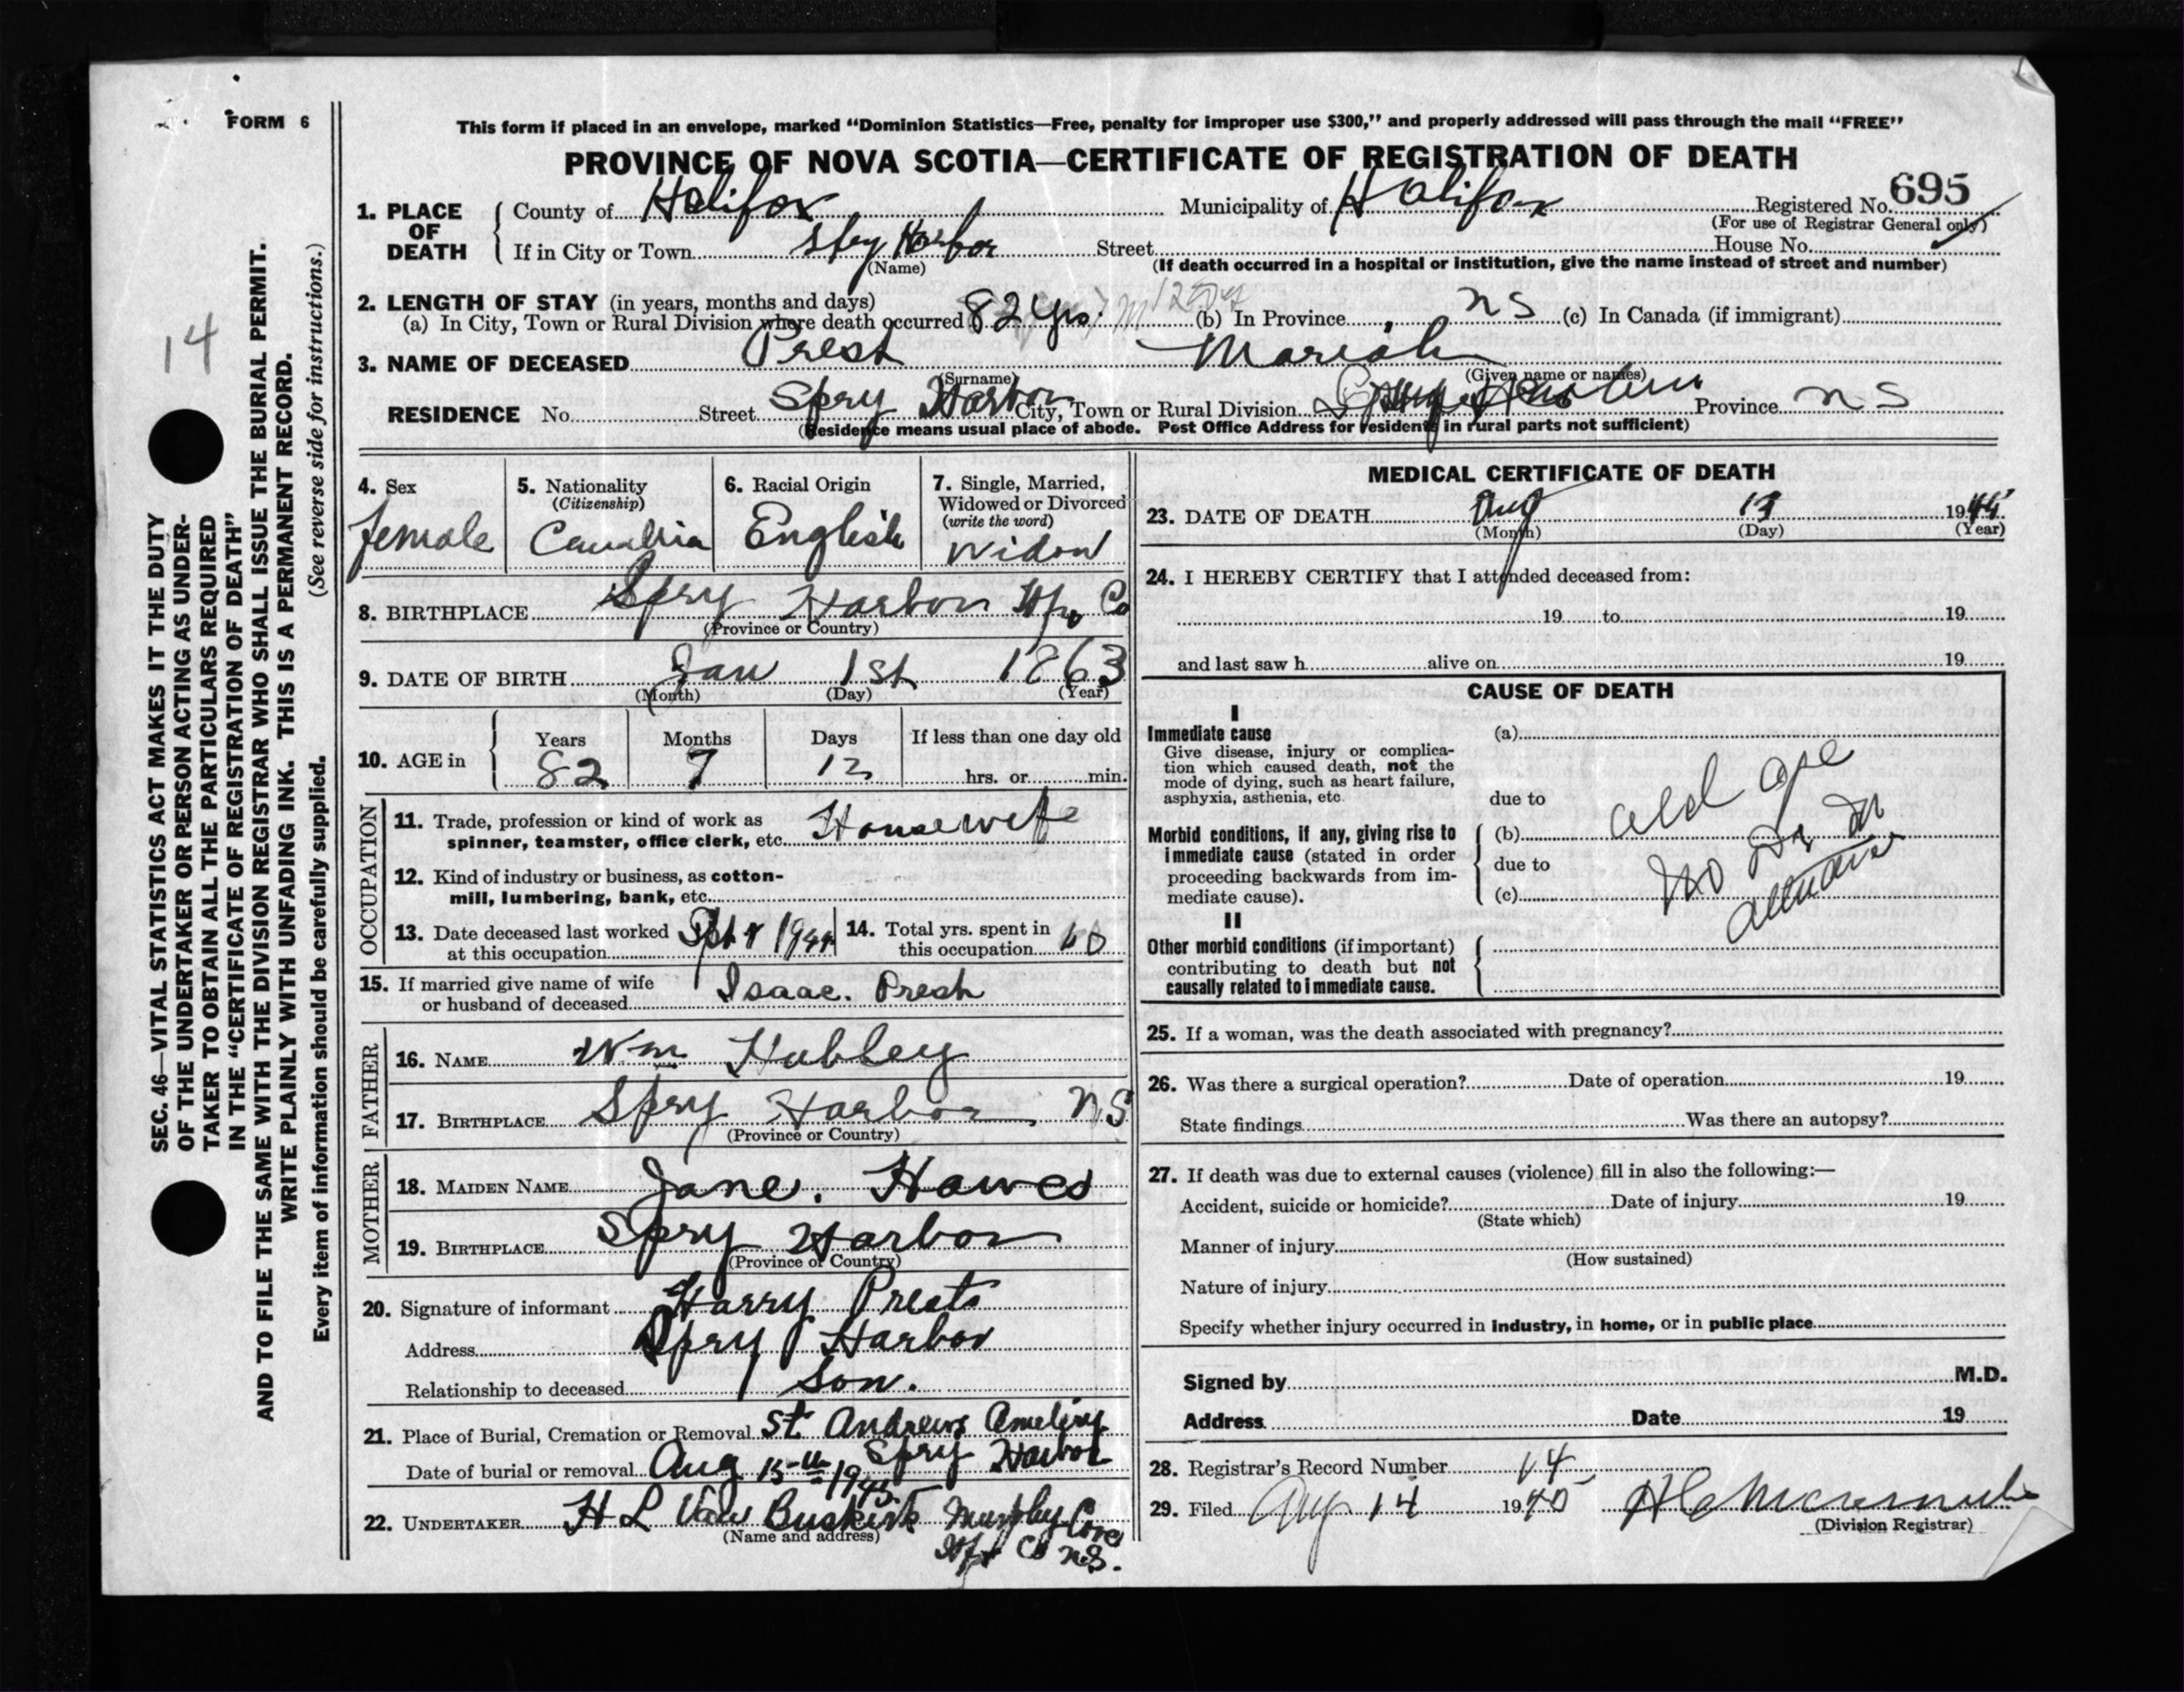 FORM 6
This form if placed in an envelope, marked “Dominion Statistics—Free, penalty for improper use $300,” and properly addressed will pass through the mail “FREE”
PROVINCE OF NOVA SCOTIA—CERTIFICATE OF REGISTRATION OF DEATH
1. PLACE OF DEATH { County of Halifax Municipality of Halifax Registered No. 695
(For use of Registrar General only)
If in City or Town Spry Harbor Street House No.
(Name) (If death occurred in a hospital or institution, give the name instead of street and number)
2. LENGTH OF STAY (in years, months and days)
(a) In City, Town or Rural Division where death occurred 82 yrs. 7 m 12 (b) In Province NS (c) In Canada (if immigrant)
3. NAME OF DECEASED Prest Mariah
(Surname) (Given name or names)
RESIDENCE No. Street Spry Harbor City, Town or Rural Division Province NS
(Residence means usual place of abode. Post Office Address for residents in rural parts not sufficient)
4. Sex
female
5. Nationality
(Citizenship)
6. Racial Origin
English
7. Single, Married,
Widowed or Divorced
(write the word)
Widow
8. BIRTHPLACE Spry Harbor Hfx Co
(Province or Country)
9. DATE OF BIRTH Jan 1st 1863
(Month) (Day) (Year)
10. AGE in { Years Months Days If less than one day old
82 7 12 hrs. or min.
OCCUPATION
11. Trade, profession or kind of work as
spinner, teamster, office clerk, etc. Housewife
12. Kind of industry or business, as cotton-
mill, lumbering, bank, etc.
13. Date deceased last worked
at this occupation
14. Total yrs. spent in
this occupation 60
15. If married give name of wife
or husband of deceased Isaac. Prest
FATHER
16. NAME Wm Hubley
17. BIRTHPLACE Spry Harbor N.S
(Province or Country)
MOTHER
18. MAIDEN NAME Jane. Hawes
19. BIRTHPLACE Spry Harbor
(Province or Country)
20. Signature of informant Harry Prest
Address Spry Harbor
Relationship to deceased Son.
21. Place of Burial, Cremation or Removal St Andrews
Spry Harbor
Date of burial or removal Aug 15th 1945
22. UNDERTAKER H L Van Buskirk Murphy Cove
(Name and address)
Hfx Co N.S.
MEDICAL CERTIFICATE OF DEATH
23. DATE OF DEATH Aug 13 19
(Month) (Day) (Year)
24. I HEREBY CERTIFY that I attended deceased from:
19 to 19
and last saw h alive on 19
CAUSE OF DEATH
I
Immediate cause (a)
Give disease, injury or complica-
tion which caused death, not the
mode of dying, such as heart failure,
asphyxia, asthenia, etc.
due to old age
Morbid conditions, if any, giving rise to
immediate cause (stated in order
proceeding backwards from im-
mediate cause).
(b)
due to No Dr in
(c) attendance
II
Other morbid conditions (if important)
contributing to death but not
causally related to immediate cause.
25. If a woman, was the death associated with pregnancy?
26. Was there a surgical operation? Date of operation 19
State findings Was there an autopsy?
27. If death was due to external causes (violence) fill in also the following:—
Accident, suicide or homicide? Date of injury 19
(State which)
Manner of injury
(How sustained)
Nature of injury
Specify whether injury occurred in industry, in home, or in public place
Signed by M.D.
Address Date 19
28. Registrar's Record Number 14
29. Filed Aug 14 19
(Division Registrar)
14
SEC. 46—VITAL STATISTICS ACT MAKES IT THE DUTY
OF THE UNDERTAKER OR PERSON ACTING AS UNDER-
TAKER TO OBTAIN ALL THE PARTICULARS REQUIRED
IN THE “CERTIFICATE OF REGISTRATION OF DEATH”
AND TO FILE THE SAME WITH THE DIVISION REGISTRAR WHO SHALL ISSUE THE BURIAL PERMIT.
WRITE PLAINLY WITH UNFADING INK. THIS IS A PERMANENT RECORD.
Every item of information should be carefully supplied. (See reverse side for instructions.)